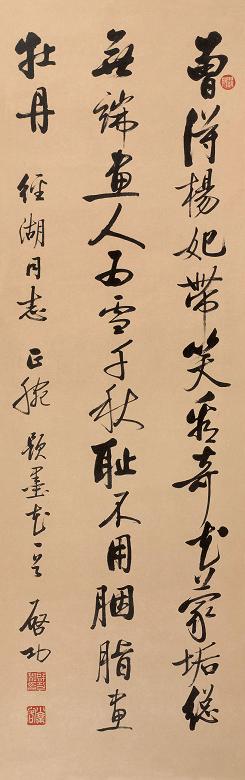 曾得杨妃带笑看奇花蒙垢总
无端画人为雪千秋耻不用胭脂画
牡丹 经湖同志正腕 题墨花一首 启功